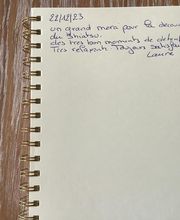 22/12/23
un grand merci pour la décou
du Shiatsu.
des très bon moments de détent
Très relaxant. Toujours satisfai
Laurie